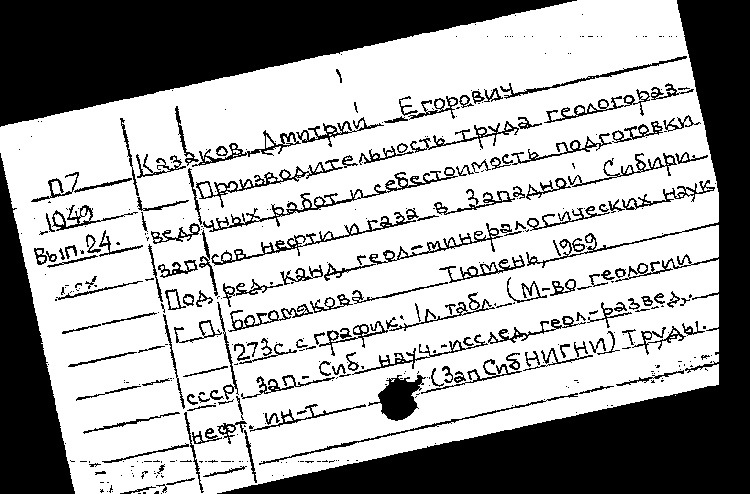 Казаков, Дмитрий Егорович
Производительность труда геологораз-
ведочных работ и себестоимость подготовки
запасов нефти и газа в Западной Сибири.
Под. ред. канд. геол-минералогических наук
Г. П. Богомякова. Тюмень, 1969.
273с. с график; 1л. табл. (М-во геологии
СССР. Зап.- Сиб. науч.-исслед. геол-развед.
нефт. ин-т. (ЗапСибНИГНИ) Труды.
П7
1049
Вып.24.